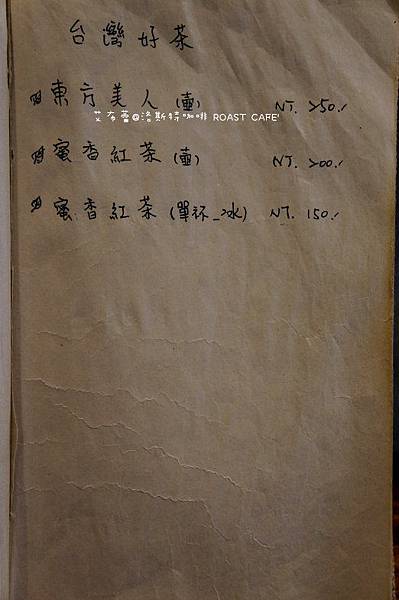 台灣好茶
東方美人(壺) NT. 250.-
艾布蕾@洛斯特咖啡 ROAST CAFE'
蜜香紅茶(壺) NT. 200.-
蜜香紅茶(單杯_冰) NT. 150.-